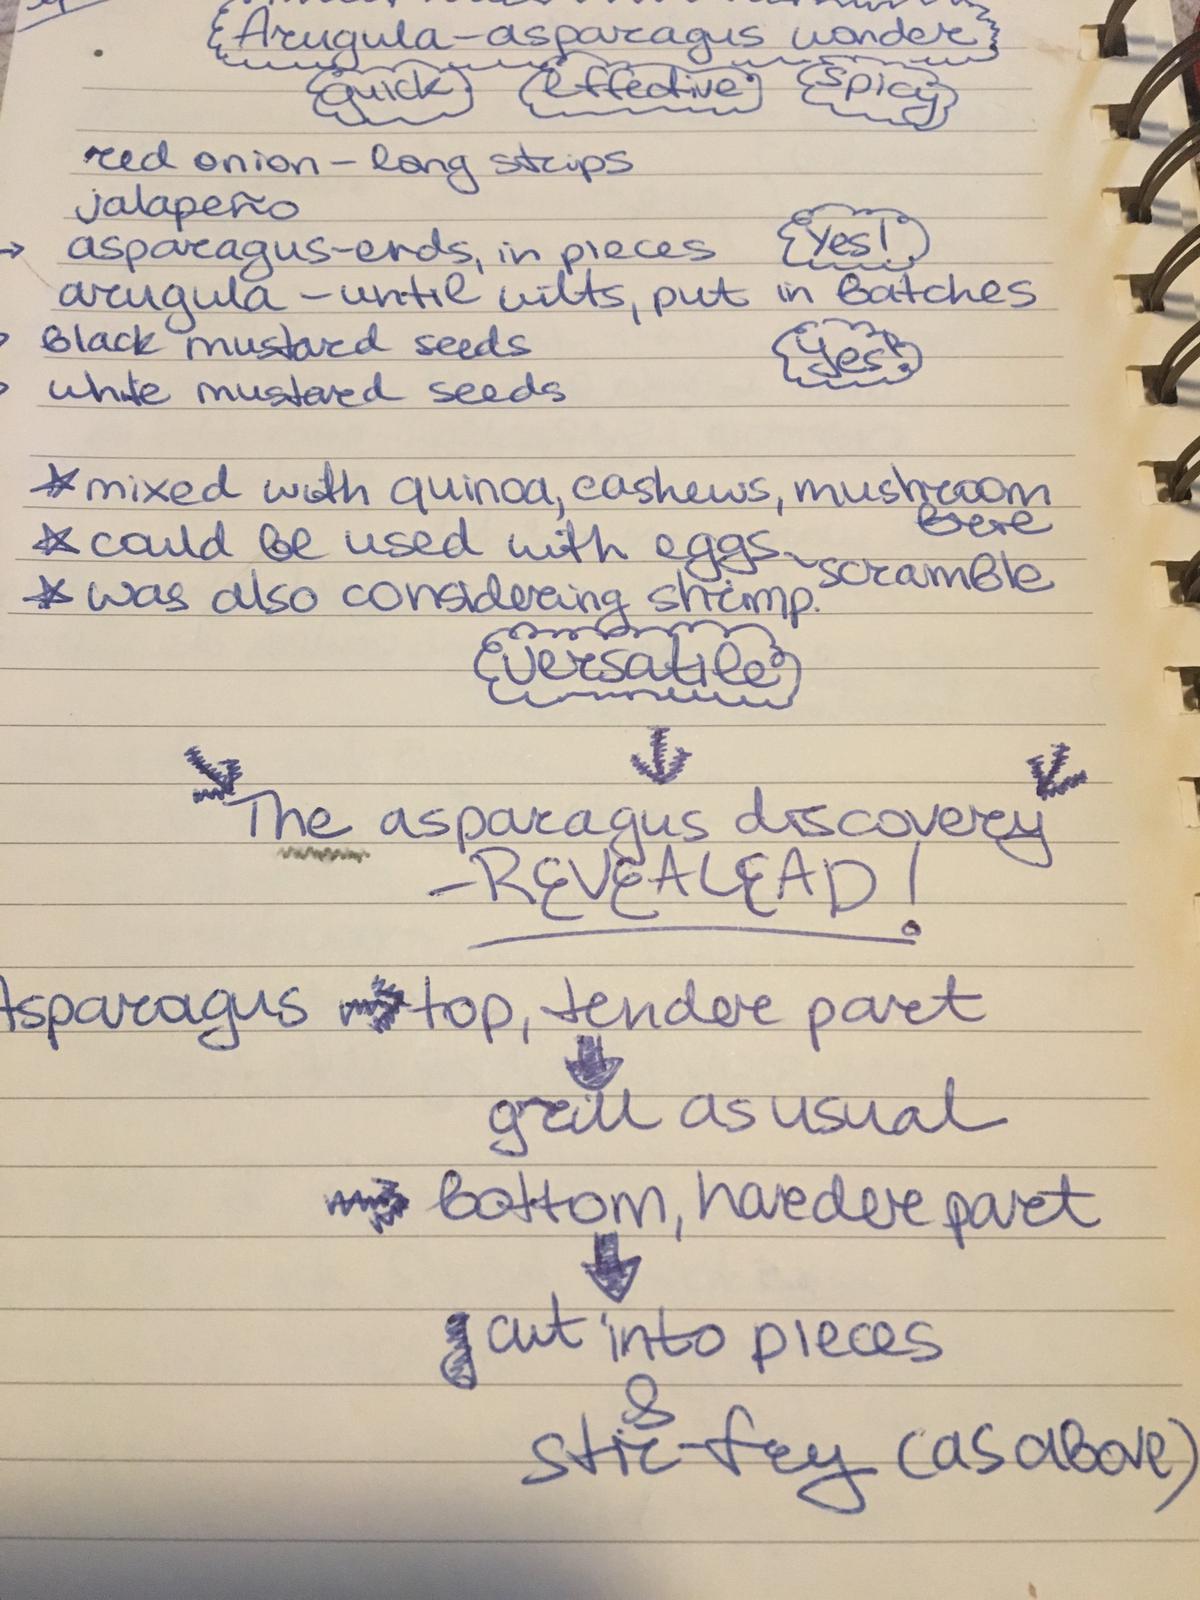 Arugula-asparagus wonder
quick effective spicy
red onion - long strips
jalapeño
→ asparagus-ends, in pieces Yes!
arugula - until wilts, put in batches
black mustard seeds Yes!
white mustard seeds
* mixed with quinoa, cashews, mushroom
* could be used with eggs - scramble
* was also considering shrimp.
versatile
The asparagus discovery
- REVEALEAD!
Asparagus → top, tender part
grill as usual
→ bottom, harder part
cut into pieces
&
stir-fry (as above)